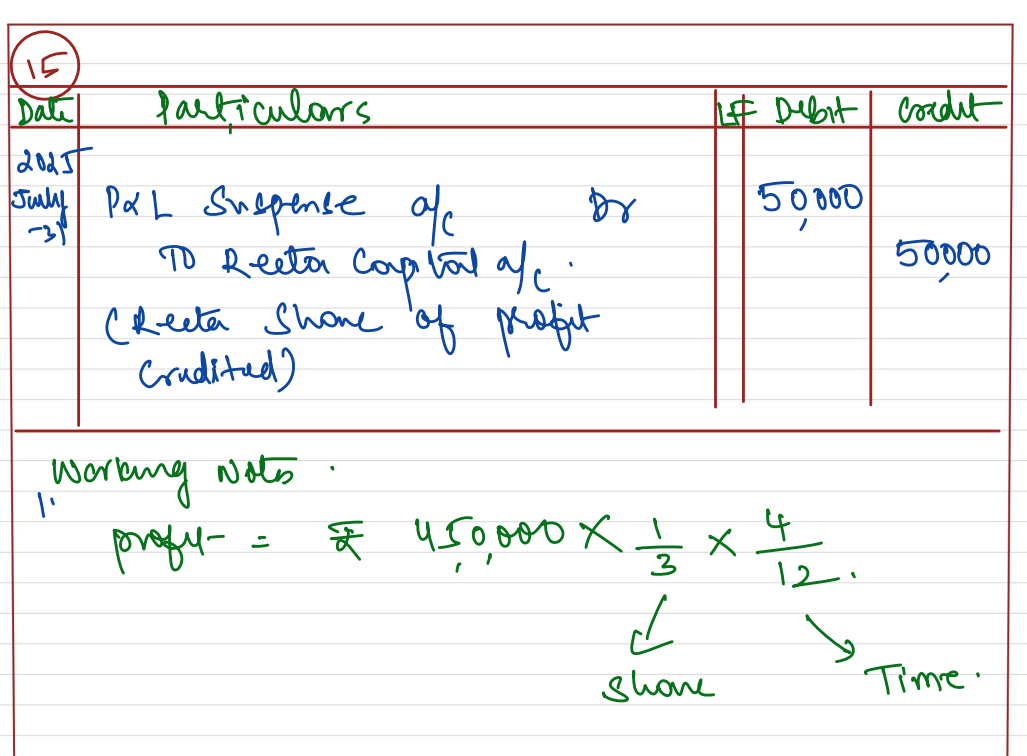 15
Date Particulars LF Debit Credit
2025
July P&L Suspense a/c Dr 50,000
-31
To Reeta Capital a/c. 50,000
(Reeta Share of profit
Credited)
Working Notes.
1.
profit = ₹ 450,000 × 1/3 × 4/12.
Share Time.